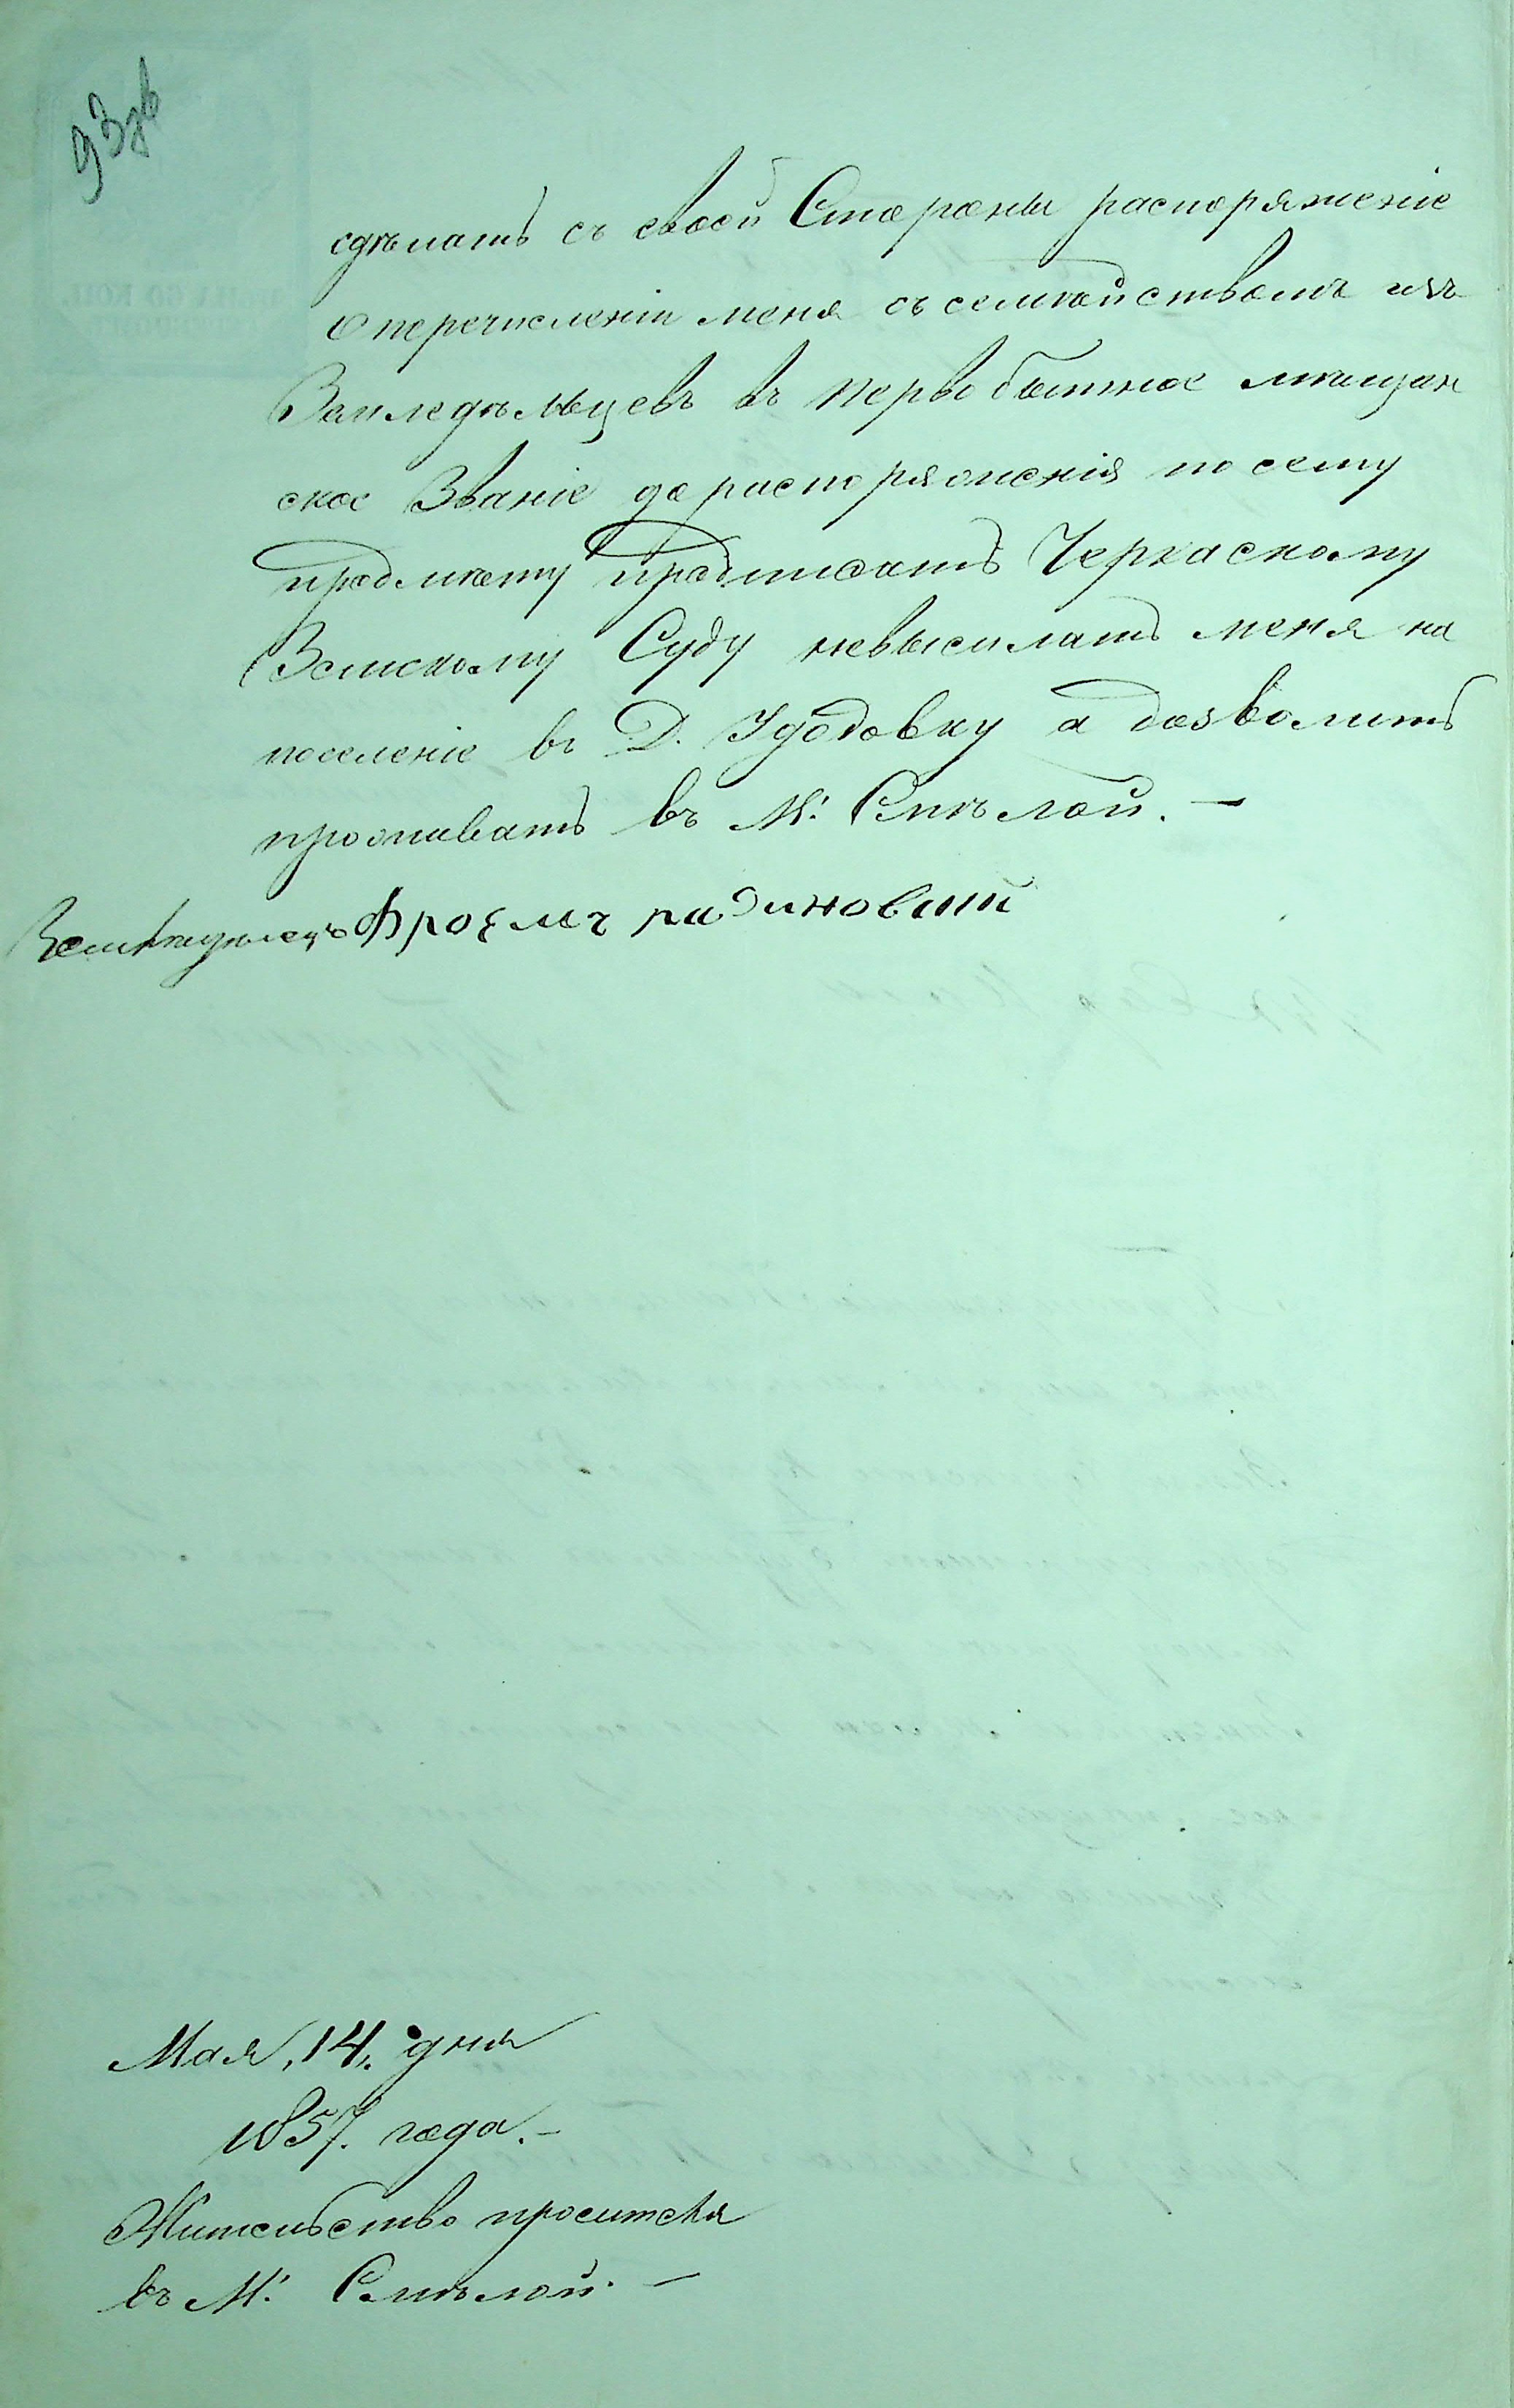 93зв
сдѣлать съ своей Стороны распоряженіе
о перечисленіи меня съ семѣйствомъ изъ
Земледѣльцевъ въ первобытное мѣщан
ское Званіе до распоряженія по сему
прѣдмѣту прѣдписать Черкаскому
Земскому Суду невысилать меня на
поселеніе въ Д. Удодовку а дозволить
проживать въ М: Смѣлой. —
Земледѣлецъ Фроемъ рабиновичь
Мая, 14, дня
1857. года. –
Жительство просителя
въ М: Смѣлой. —